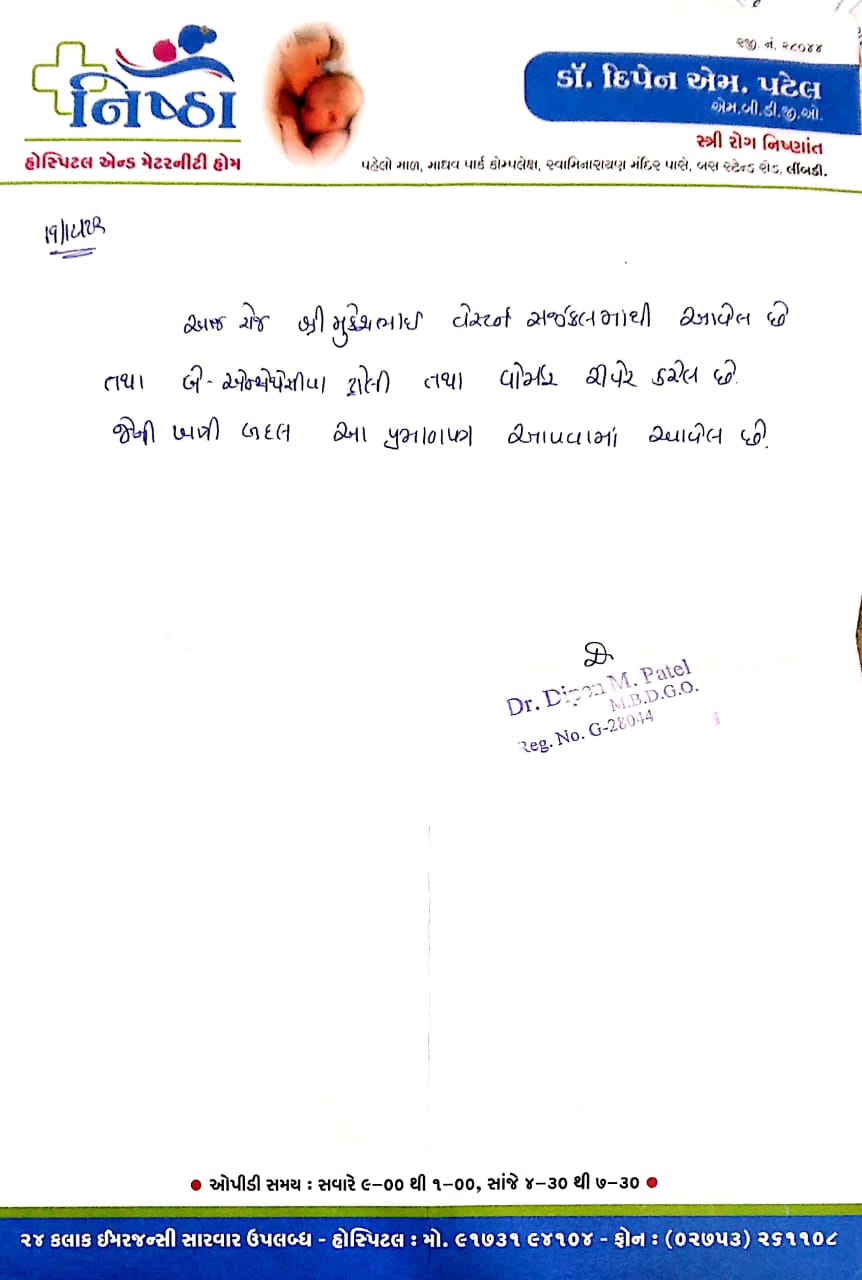 રજી. નં. ૨૮૦૪૪
નિષ્ઠા
ડૉ. દિપેન એમ. પટેલ
એમ.બી.ડી.જી.ઓ.
સ્ત્રી રોગ નિષ્ણાંત
હોસ્પિટલ એન્ડ મેટરનીટી હોમ
પહેલો માળ, માધવ પાર્ક કોમ્પલેક્ષ, સ્વામિનારાયણ મંદિર પાસે, બસ સ્ટેન્ડ રોડ, લીંબડી.
આજ રોજ શ્રી મુકેશભાઇ વેસ્ટર્ન સર્જીકલમાથી આવેલ છે
તથા બે - ટ્રોલી તથા વોર્મર રીપેર કરેલ છે.
જેની ખાત્રી બદલ આ પ્રમાણપત્ર આપવામાં આવેલ છે.
Dr. Dipen M. Patel
M.B.D.G.O.
Reg. No. G-28044
• ઓપીડી સમય : સવારે ૯-૦૦ થી ૧-૦૦, સાંજે ૪-૩૦ થી ૭-૩૦ •
૨૪ કલાક ઈમરજન્સી સારવાર ઉપલબ્ધ - હોસ્પિટલ : મો. ૯૧૭૩૧ ૯૪૧૦૪ - ફોન : (૦૨૭૫૩) ૨૬૧૧૦૮